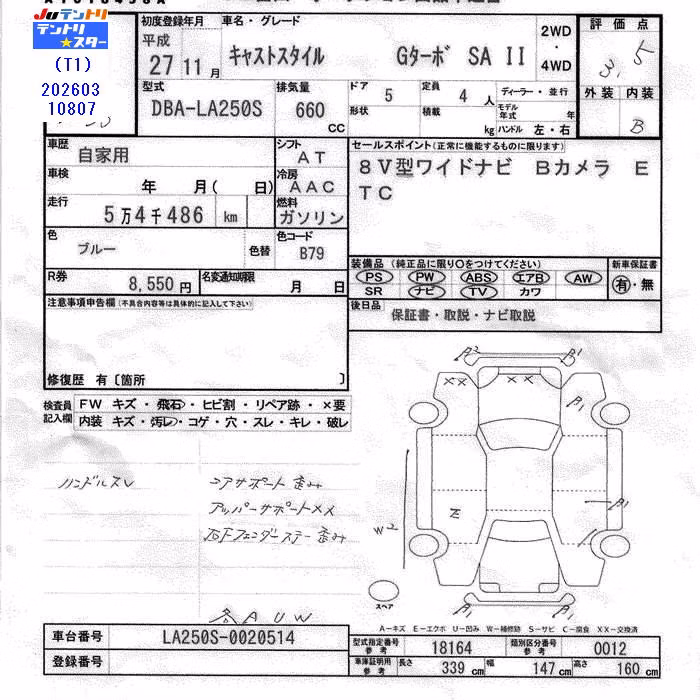 JUテントリ
テントリ★スター
(T1)
202603
10807
初度登録年月
平成
27 11 月
車名・グレード
キャストスタイル Gターボ SA II
2WD
・
4WD
評価点
3.5
外装 内装
B
型式
DBA-LA250S
排気量
660
CC
ドア 5
定員 4 人
形状
積載 kg
ディーラー・並行
モデル年式 年
ハンドル 左・右
車歴
自家用
シフト
AT
車検
年 月( 日)
冷房
AAC
走行
5万4千486 km
燃料
ガソリン
色
ブルー
色替
色コード
B79
R券
8,550円
名変通知期限
月 日
セールスポイント(正常に機能するものに限ります)
8V型ワイドナビ Bカメラ E
TC
装備品(純正品に限り○をつけてください)
新車保証書
PS PW ABS エアB AW
SR ナビ TV カワ
有・無
後日品
保証書・取説・ナビ取説
注意事項申告欄(不具合内容等は具体的に記入して下さい)
修復歴 有〔箇所 〕
検査員記入欄
FW キズ・飛石・ヒビ割・リペア跡・×要
内装 キズ・汚レ・コゲ・穴・スレ・キレ・破レ
ハンドルスレ
コアサポート歪み
アッパーサポートXX
右Fフェンダーステー歪み
各AUW
XX
XX
W2
スペア
A−キズ E−エクボ U−凹み W−補修跡 S−サビ C−腐食 XX−交換済
車台番号
LA250S-0020514
登録番号
型式指定番号
参考
18164
類別区分番号
参考
0012
車庫証明用
参考
長さ 339 cm
幅 147 cm
高さ 160 cm